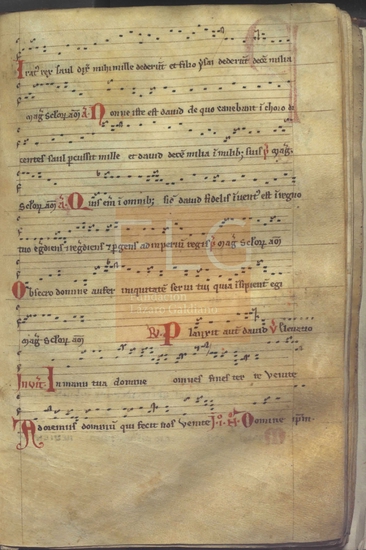 Irat9 rex saul dix michi mille dederunt et filio ysai dederunt dece milia
mag. sclor. am A. Nonne iste est david de quo canebant i choro di
centes saul percussit mille et david dece milia i milib; suis p mag.
sclor. am A. Quis eni i omnib; sic david fidelis invent9 est i regno
tuo egdiens i regdiens et pgens ad imperium regis p mag. sclor. am
Obsecro domine aufer iniquitatem servi tui quia insipient egi
mag. sclor. am R. Planxit aut david V. Ieiuno
Invit. In manu tua domine omnes fines ter re venite
Adoremus dominu qui fecit nos venite I. i. N. A. Domine
FLG
Fundación
Lázaro Galdiano